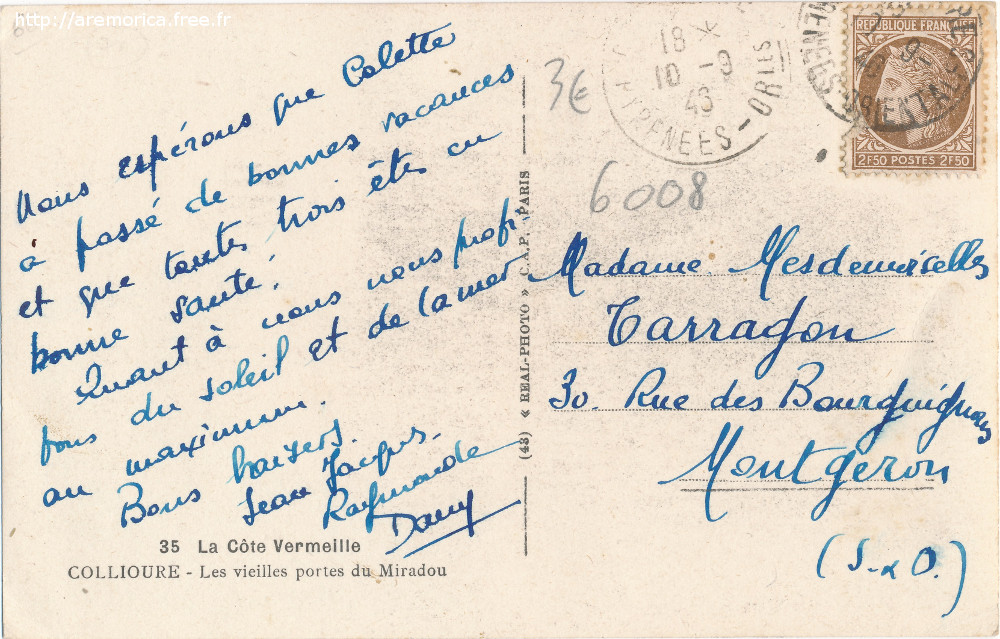 http://aremorica.free.fr
Nous espérons que Colette
a passé de bonnes vacances
et que toutes trois êtes en
bonne santé.
Quant à nous nous profi-
tons du soleil et de la mer
au maximum.
Bons baisers.
Jean Jacques.
Raymonde
Dany
35 La Côte Vermeille
COLLIOURE - Les vieilles portes du Miradou
(43) « REAL-PHOTO » C.A.P. PARIS
3€
6008
18 *
10 - 9
46
PYRENEES-ORIES
REPUBLIQUE FRANÇAISE
2F50 POSTES 2F50
PYRENEES-ORIENTALES
Madame Mesdemoiselles
Tarragon
30. Rue des Bourguignons
Montgeron
(S-&O.)